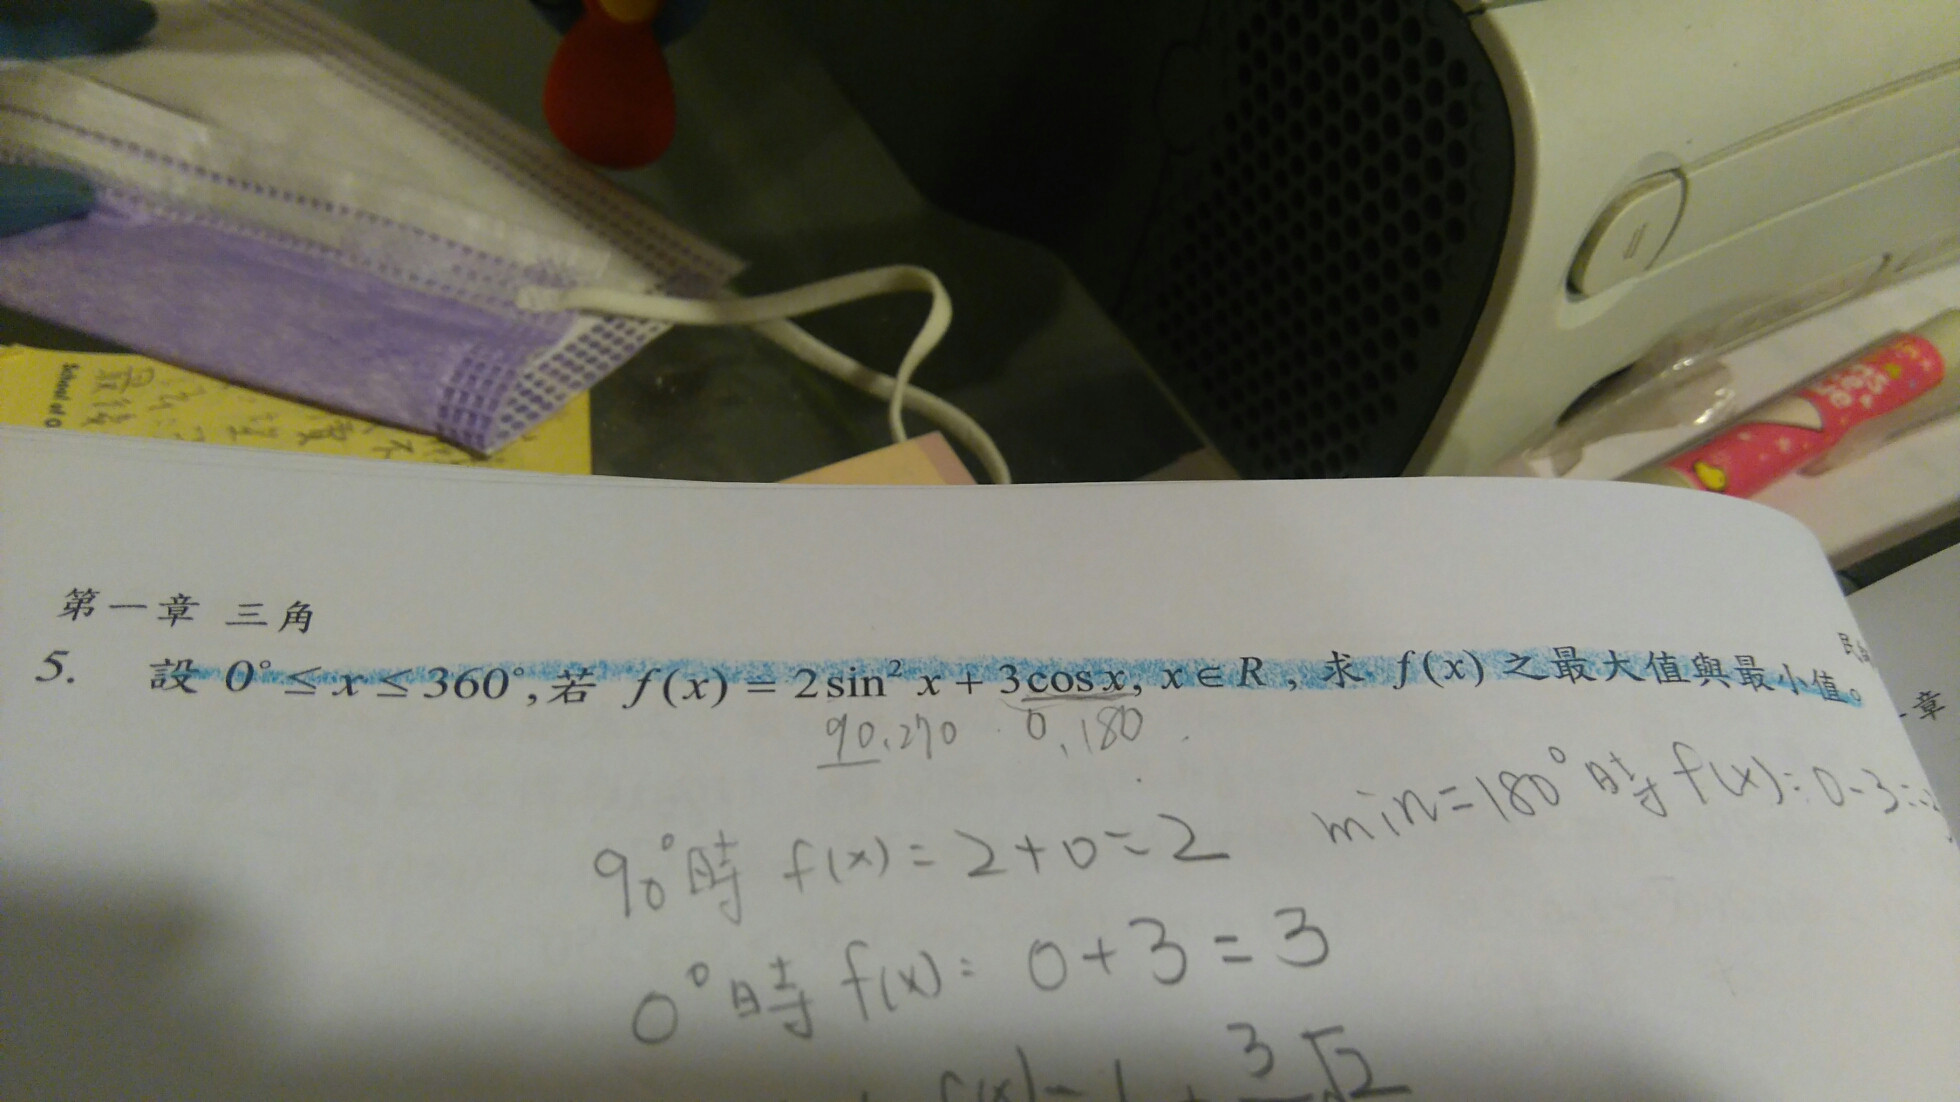 School of
最後
第一章 三角
5. 設 0° ≤ x ≤ 360°, 若 f(x) = 2sin² x + 3cos x, x ∈ R, 求 f(x) 之最大值與最小值。
章
90.270 0.180
min=180°時 f(x)=0-3=
90°時 f(x)=2+0=2
0°時 f(x)= 0+3=3
f(x)=1+3√2